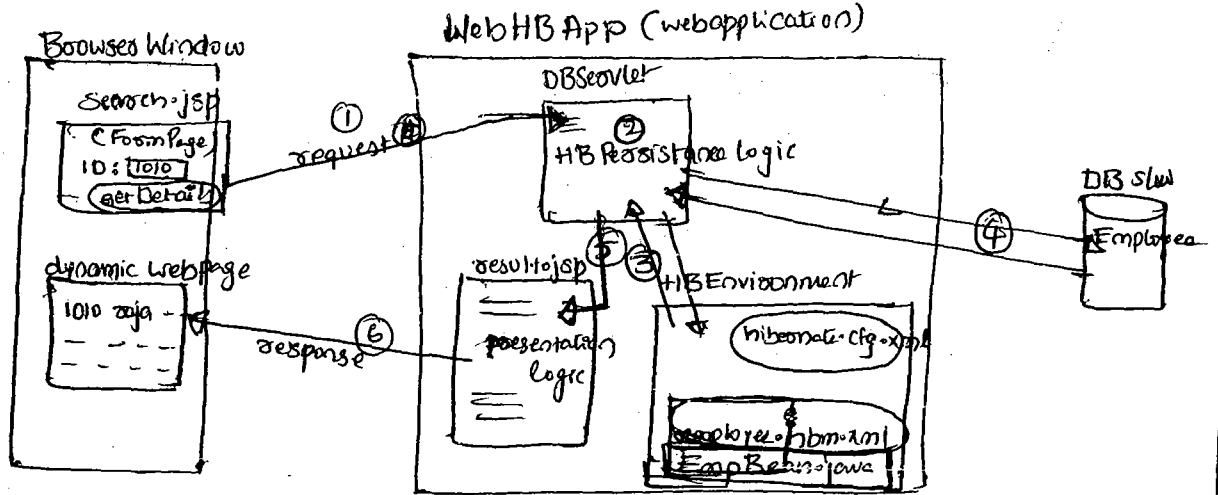 WebHBApp (webapplication)
Browser Window
Search.jsp
(FormPage)
ID: 1010
getDetails
①
request
DBServlet
②
HB Persistance Logic
④
DB s/w
Employee
dynamic webpage
1010 raja
⑥
response
⑤
result.jsp
presentation
logic
③
HB Environment
hibernate.cfg.xml
employee.hbm.xml
EmpBean.java